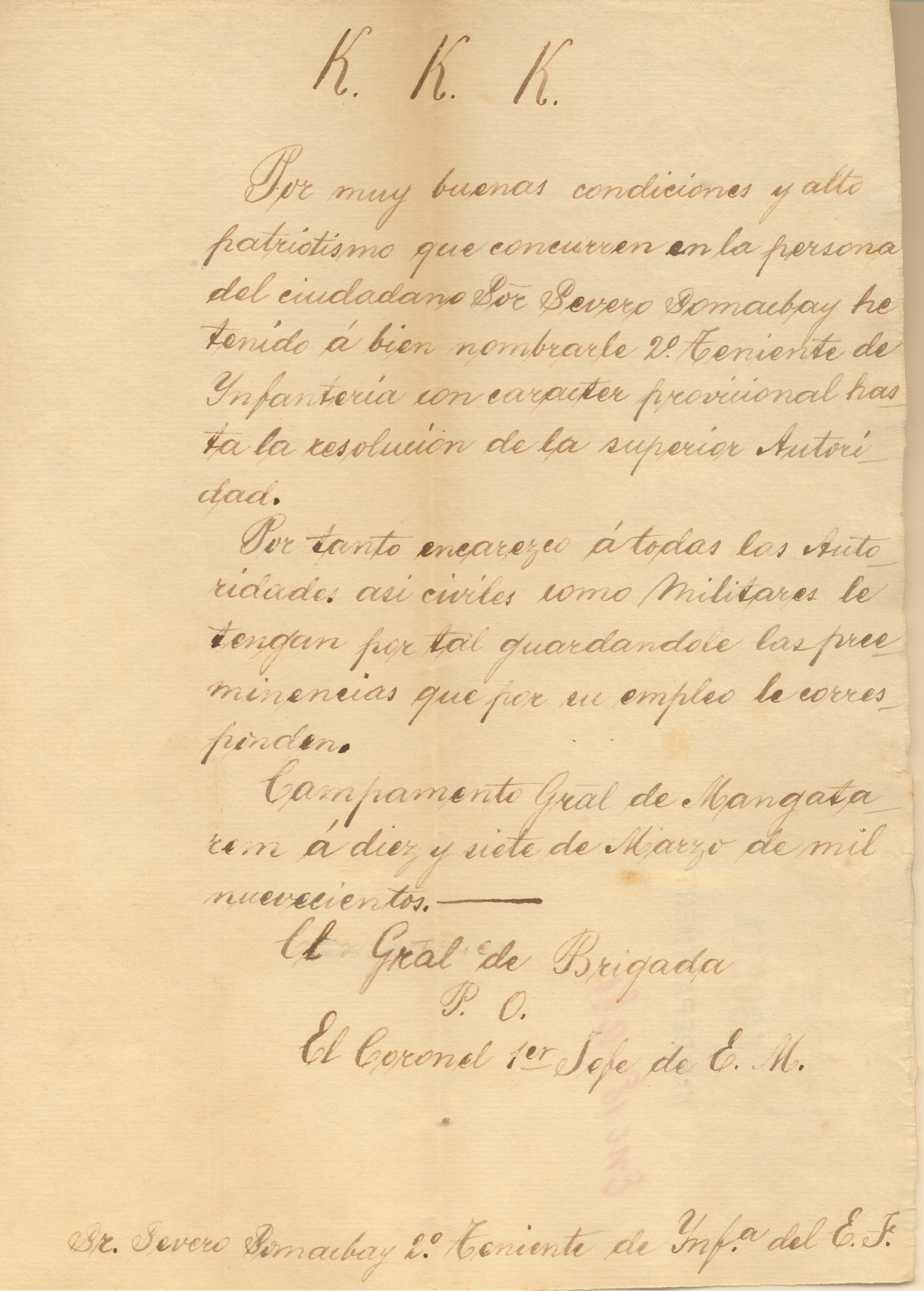 K. K. K.
Por muy buenas condiciones y alto
patriotismo que concurren en la persona
del ciudadano Sōr Severo Somaebay he
tenido á bien nombrarle 2º. Teniente de
Ynfanteria con caracter provicional has-
ta la resolución de la superior Autori-
dad.
Por tanto encarezco á todas las Auto-
ridades asi civiles como Militares le
tengan por tal guardandole las pree-
minencias que por su empleo le corres-
ponden.
Campamento Gral de Mangata-
rem á diez y siete de Marzo de mil
nuevecientos.—
El Gral de Brigada
P. O.
El Coronel 1er Jefe de E. M.
Sr. Severo Somaebay 2º. Teniente de Ynf.a del E. F.